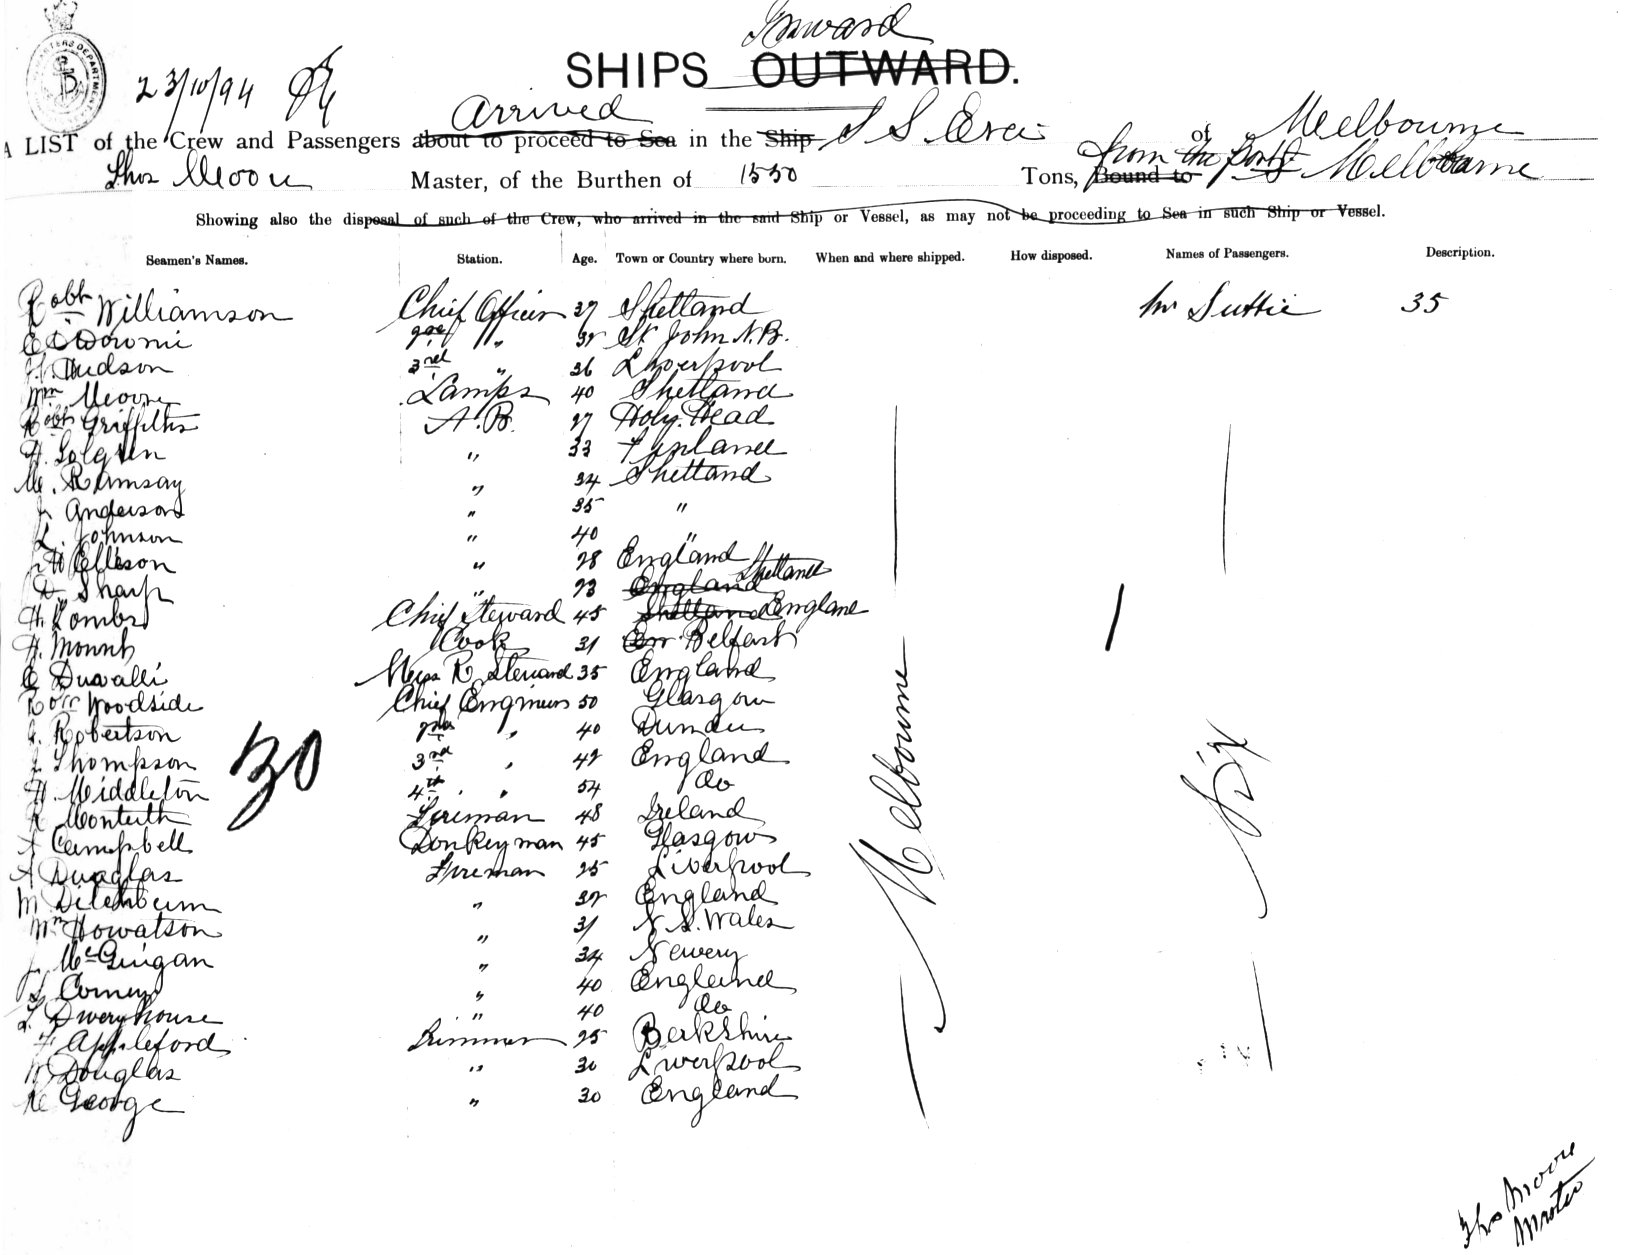 Inward
SHIPS OUTWARD.
23/10/94
Arrived
A LIST of the Crew and Passengers about to proceed to Sea in the Ship S S Era of Melbourne
Thos Moore Master, of the Burthen of 1550 Tons, Bound to from the port of Melbourne
Showing also the disposal of such of the Crew, who arrived in the said Ship or Vessel, as may not be proceeding to Sea in such Ship or Vessel.
Seamen's Names. Station. Age. Town or Country where born. When and where shipped. How disposed. Names of Passengers. Description.
Robt Williamson Chief Officer 37 Shetland Mr Suttie 35
E D Downie 2nd " St John N.B.
Hudson 3rd " 36 Liverpool
Wm Moore Lamps 40 Shetland
Robt Griffiths A.B. 27 Holy Head
H. Solgren " 33 Finland
M. Ramsay " 34 Shetland
J. Anderson " 35 "
L. Johnson " 40 "
" 28 England
D. Sharp " 23 England Shetland
H. Combs Chief Steward 45 Shetland England
H. Mount Cook 31 Belfast
E Duvalli Mess R. Steward 35 England
Robt Woodside Chief Engineer 50 Glasgow
J. Robertson 2nd " 40 Dundee
J Thompson 3rd " 42 England
H. Middleton 4th " 54 do
R Monteith Fireman 48 Ireland
A Campbell Donkeyman 45 Glasgow
A Douglas Fireman 25 Liverpool
M " 32 England
Wm Howatson " 31 N. S. Wales
J. McGuigan " 34 Newery
Corney " 40 England
L. Dweryhouse " 40 do
F Appleford Trimmer 25 Berkshire
W Douglas " 30 Liverpool
George " 30 England
30
Melbourne
1
Six
Thos Moore
Master